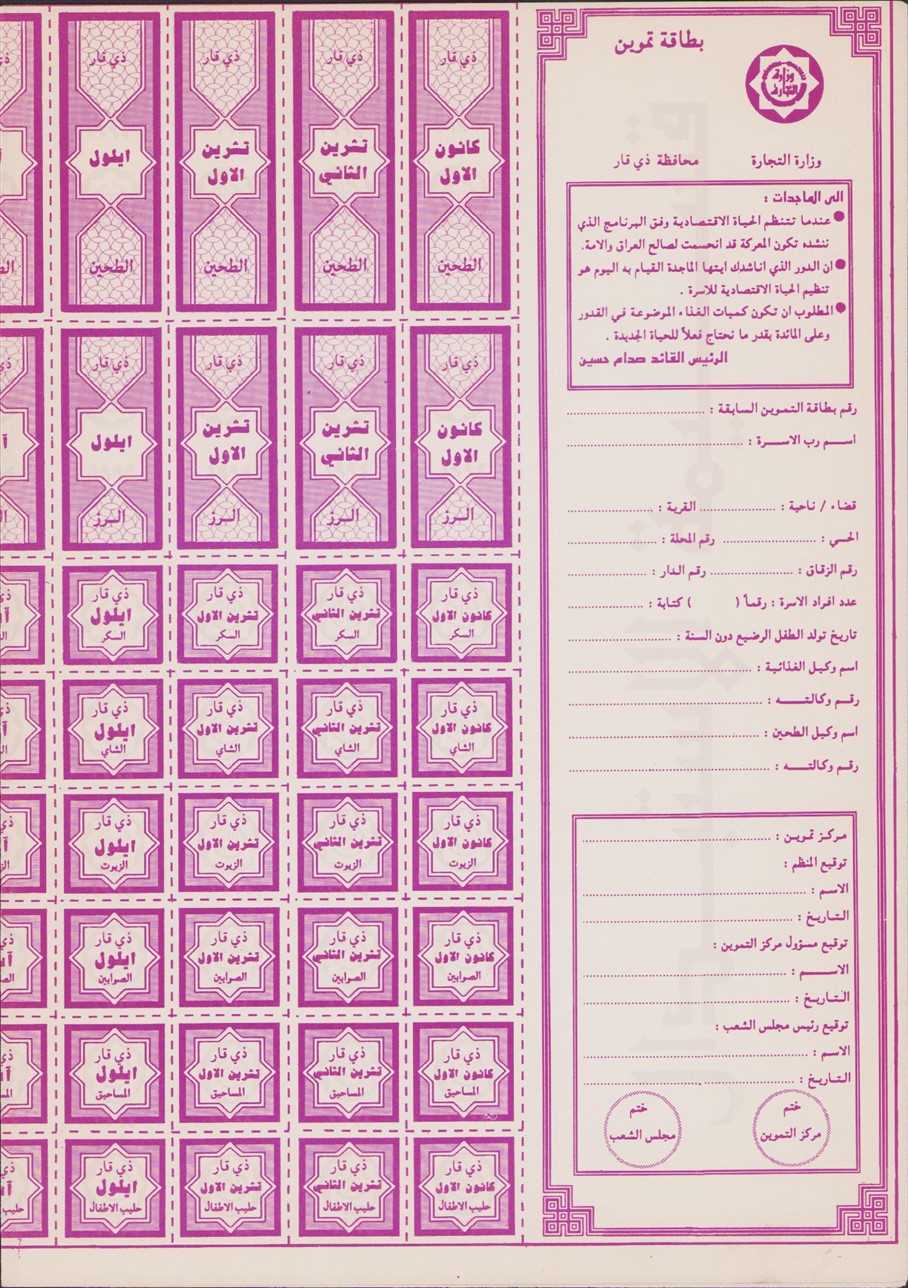 بطاقة تموين
وزارة التجارة
وزارة التجارة
محافظة ذي قار
الى الماجدات :
● عندما تنتظم الحياة الاقتصادية وفق البرنامج الذي
ننشده تكون المعركة قد انحسمت لصالح العراق والامة.
● ان الدور الذي اناشدك ايتها الماجدة القيام به اليوم هو
تنظيم الحياة الاقتصادية للاسرة .
● المطلوب ان تكون كميات الغذاء الموضوعة في القدور
وعلى المائدة بقدر ما نحتاج فعلاً للحياة الجديدة .
الرئيس القائد صدام حسين
رقم بطاقة التموين السابقة :
اسم رب الاسرة :
قضاء / ناحية : القرية :
الحي : رقم المحلة :
رقم الزقاق : رقم الدار :
عدد افراد الاسرة : رقماً ( ) كتابة :
تاريخ تولد الطفل الرضيع دون السنة :
اسم وكيل الغذائية :
رقم وكالته :
اسم وكيل الطحين :
رقم وكالته :
مركز تموين :
توقيع المنظم :
الاسم :
التاريخ :
توقيع مسؤول مركز التموين :
الاسم :
التاريخ :
توقيع رئيس مجلس الشعب :
الاسم :
التاريخ :
ختم
مركز التموين
ختم
مجلس الشعب
ذي قار ذي قار ذي قار ذي قار
كانون الاول تشرين الثاني تشرين الاول ايلول
الطحين الطحين الطحين الطحين
ذي قار ذي قار ذي قار ذي قار
كانون الاول تشرين الثاني تشرين الاول ايلول
الرز الرز الرز الرز
ذي قار ذي قار ذي قار ذي قار
كانون الاول تشرين الثاني تشرين الاول ايلول
السكر السكر السكر السكر
ذي قار ذي قار ذي قار ذي قار
كانون الاول تشرين الثاني تشرين الاول ايلول
الشاي الشاي الشاي الشاي
ذي قار ذي قار ذي قار ذي قار
كانون الاول تشرين الثاني تشرين الاول ايلول
الزيوت الزيوت الزيوت الزيوت
ذي قار ذي قار ذي قار ذي قار
كانون الاول تشرين الثاني تشرين الاول ايلول
الصوابين الصوابين الصوابين الصوابين
ذي قار ذي قار ذي قار ذي قار
كانون الاول تشرين الثاني تشرين الاول ايلول
المساحيق المساحيق المساحيق المساحيق
ذي قار ذي قار ذي قار ذي قار
كانون الاول تشرين الثاني تشرين الاول ايلول
حليب الاطفال حليب الاطفال حليب الاطفال حليب الاطفال